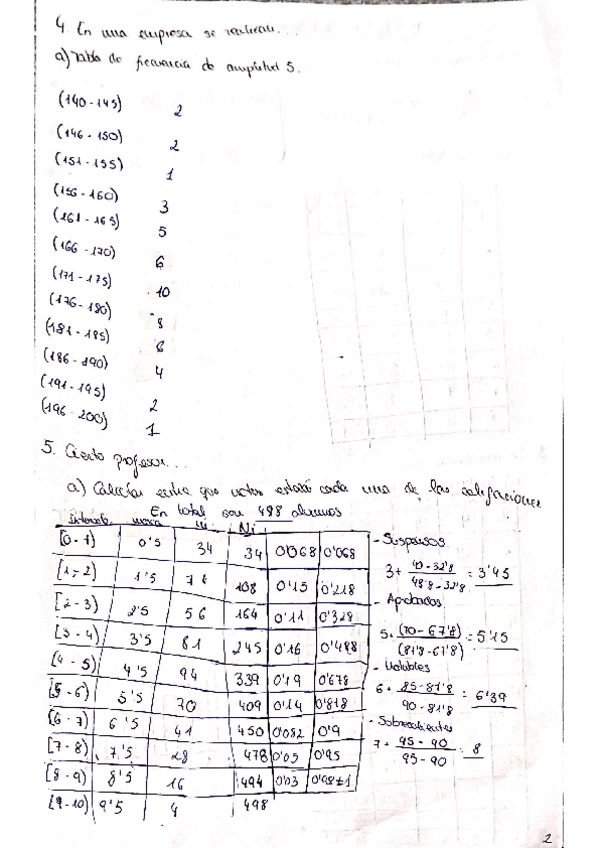 4. En una empresa se realizan...
a) Tabla de frecuencia de amplitud 5.
(140 - 145) 2
(146 - 150) 2
(151 - 155) 1
(156 - 160) 3
(161 - 165) 5
(166 - 170) 6
(171 - 175) 10
(176 - 180) 8
(181 - 185) 6
(186 - 190) 4
(191 - 195) 2
(196 - 200) 1
5. Cierto profesor...
a) Calcular entre que notas estará cada una de las calificaciones
En total son 498 alumnos
Intervalo marca ni Ni
[0 - 1) 0'5 34 34 0'068 0'068
[1 - 2) 1'5 74 108 0'15 0'218
[2 - 3) 2'5 56 164 0'11 0'328
[3 - 4) 3'5 81 245 0'16 0'488
[4 - 5) 4'5 94 339 0'19 0'678
[5 - 6) 5'5 70 409 0'14 0'818
[6 - 7) 6'5 41 450 0'082 0'9
[7 - 8) 7'5 28 478 0'05 0'95
[8 - 9) 8'5 16 494 0'03 0'98±1
[9 - 10) 9'5 4 498
- Suspensos
3 + 40 - 32'8 / 48'8 - 32'8 = 3'45
- Aprobados
5 + (70 - 67'8) / (81'8 - 67'8) = 5'15
- Notables
6 + 85 - 81'8 / 90 - 81'8 = 6'39
- Sobresalientes
7 + 95 - 90 / 95 - 90 = 8
2